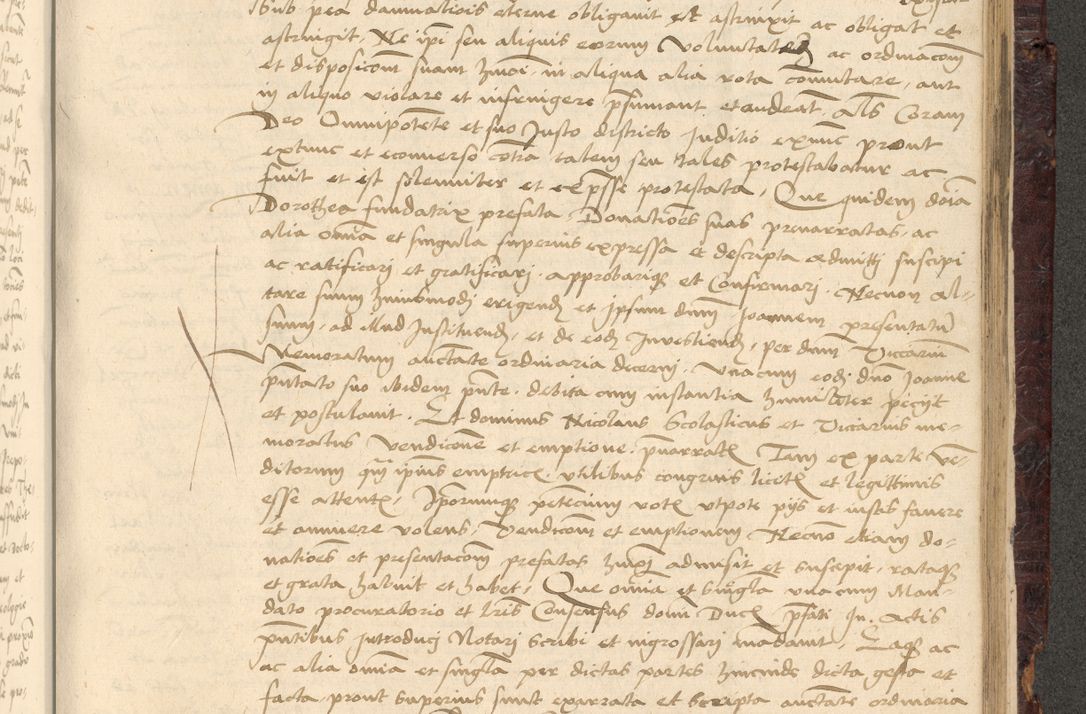 Sub pea damnatiois eterne obligavit et astrinxit ac obligat et
astringit, Ne ipi seu aliquis eorum voluntatem ac ordinacoem
et disposicom suam hmoi in aliqua alia vota comutare, aut
in aliquo violare et infringere psumant et audeat. Als Coram
Deo Omnipotete et suo Justo districto Juditio exnuc prout
extunc et econverso cotra talem seu tales protestabatur ac
fuit et est solenniter et expsse protestata, Que quidem doia
Dorothea fundatrix prefata Donatioes suas prenarratas, ac
alia omia et singula superius expressa et descripta admitti suscipi
ac ratificari et gratificari, approbarique et Confirmari, Necnon Al-
tare suum huiusmodi erigend et ipsum dnm Joannem presentatu
suum, ad illud Instituend, et de eod Investiend, per dnm Vicarium
Memoratum auctate ordinaria decerni, Unacum eod dno Joanne
pntato suo ibidem pnte, debita cum instantia humiliter peciit
et postulavit. Et dominus Nicolaus Scolasticus et Vicarius me-
moratus vendicone et emptione pnarratis Tam ex parte ve-
ditorum qm ipius emptricis utilibus congruis licitis et legittimis
esse attentis, Iporumque petecium votis utpote piis et iustis favere
et annuere volens, Vendicom et emptionem Necno etiam do-
natioes et presentacom prefatas hmoi admisit et suscepit, rataque
et grata habuit et habet, Que omia et singla una cum Man-
dato procuratorio et lris Consensus domi Ducis pfati In Actis
pntibus introduci Notari scribi et ingrossari madavit, Eaque ac
ac alia omia et singla per dictas partes hincinde dicta gesta et
facta, prout superius sunt exarrata et scripta auctate ordinaria